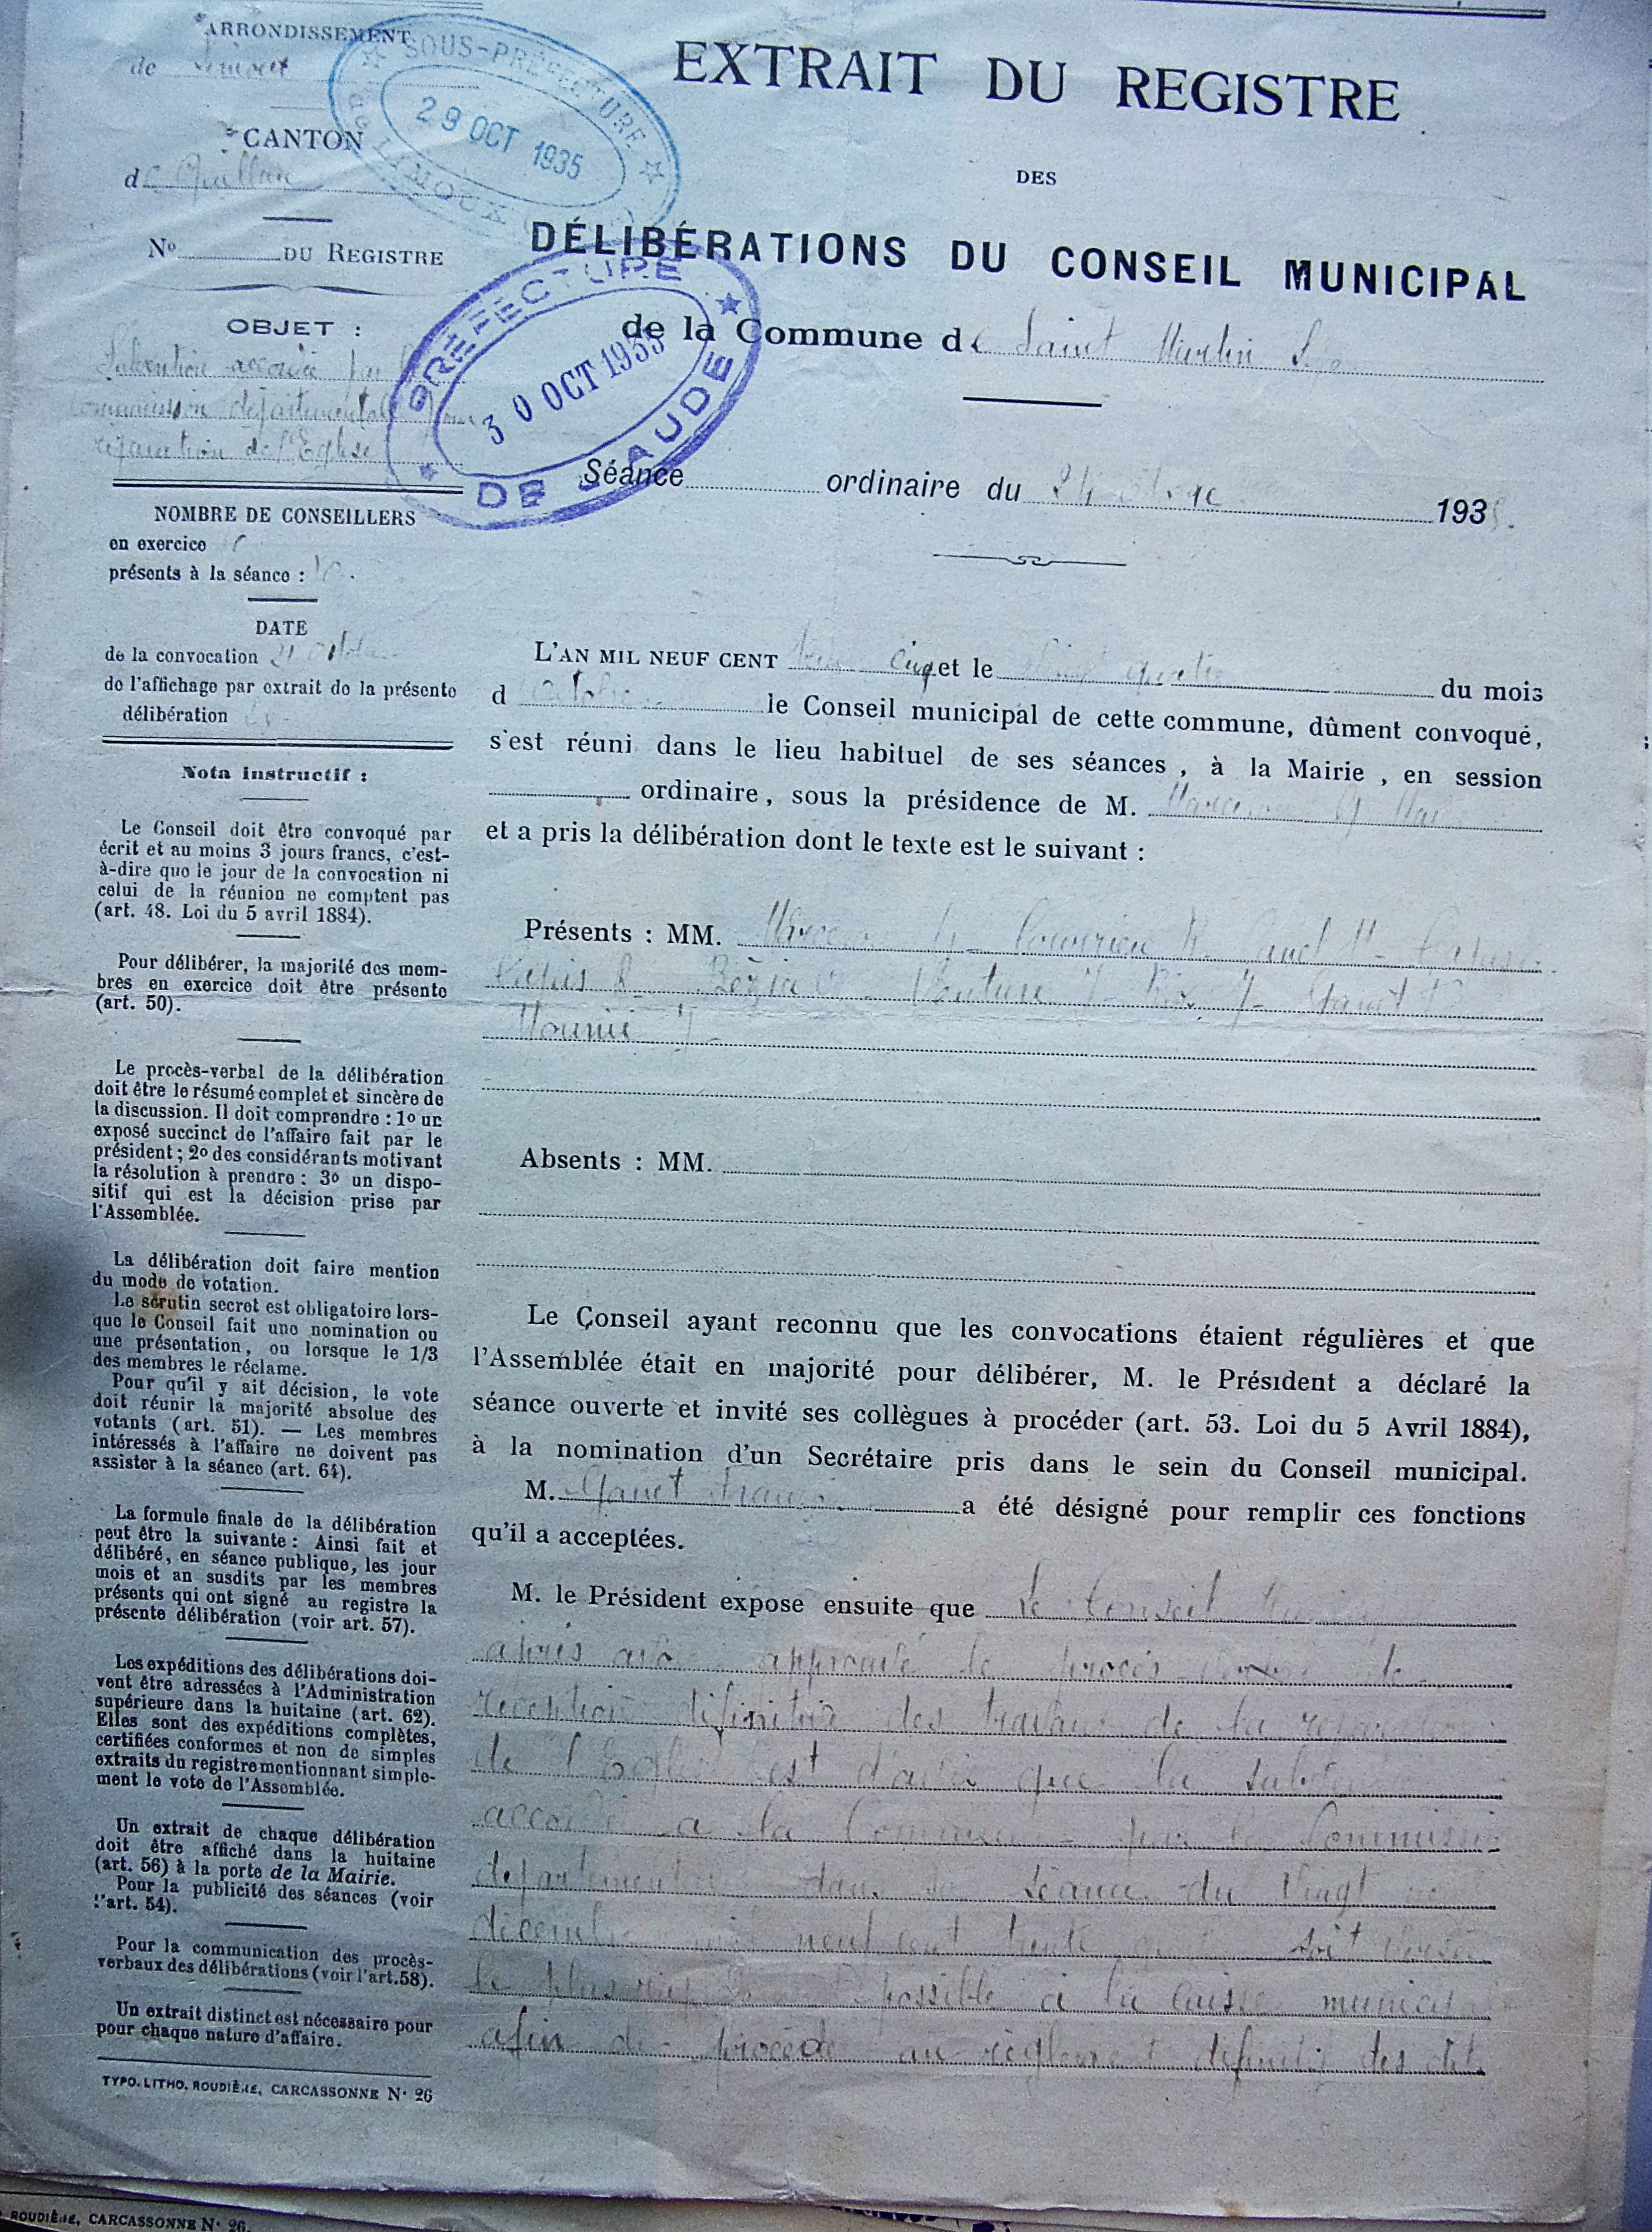 ARRONDISSEMENT
de Limoux
CANTON
de Quillan
No DU REGISTRE
OBJET :
Subvention accordée par
commission départementale pour
réparation de l'Eglise
NOMBRE DE CONSEILLERS
en exercice
présents à la séance : 10.
DATE
de la convocation 21 Octobre
de l'affichage par extrait de la présente
délibération
Nota instructif :
Le Conseil doit être convoqué par
écrit et au moins 3 jours francs, c'est-
à-dire que le jour de la convocation ni
celui de la réunion ne comptent pas
(art. 48. Loi du 5 avril 1884).
Pour délibérer, la majorité des mem-
bres en exercice doit être présente
(art. 50).
Le procès-verbal de la délibération
doit être le résumé complet et sincère de
la discussion. Il doit comprendre : 1o un
exposé succinct de l'affaire fait par le
président ; 2o des considérants motivant
la résolution à prendre : 3o un dispo-
sitif qui est la décision prise par
l'Assemblée.
La délibération doit faire mention
du mode de votation.
Le scrutin secret est obligatoire lors-
que le Conseil fait une nomination ou
une présentation, ou lorsque le 1/3
des membres le réclame.
Pour qu'il y ait décision, le vote
doit réunir la majorité absolue des
votants (art. 51). — Les membres
intéressés à l'affaire ne doivent pas
assister à la séance (art. 64).
La formule finale de la délibération
peut être la suivante : Ainsi fait et
délibéré, en séance publique, les jour
mois et an susdits par les membres
présents qui ont signé au registre la
présente délibération (voir art. 57).
Les expéditions des délibérations doi-
vent être adressées à l'Administration
supérieure dans la huitaine (art. 62).
Elles sont des expéditions complètes,
certifiées conformes et non de simples
extraits du registre mentionnant simple-
ment le vote de l'Assemblée.
Un extrait de chaque délibération
doit être affiché dans la huitaine
(art. 56) à la porte de la Mairie.
Pour la publicité des séances (voir
l'art. 54).
Pour la communication des procès-
verbaux des délibérations (voir l'art. 58).
Un extrait distinct est nécessaire pour
pour chaque nature d'affaire.
TYPO. LITHO. ROUDIÈRE, CARCASSONNE N° 26
SOUS-PRÉFECTURE
29 OCT 1935
DE LIMOUX
PRÉFECTURE
30 OCT 1935
DE L'AUDE
EXTRAIT DU REGISTRE
DES
DÉLIBÉRATIONS DU CONSEIL MUNICIPAL
de la Commune de Saint Martin Lys
Séance ordinaire du 24 1935.
L'AN MIL NEUF CENT trente cinq et le vingt quatre du mois
d octobre le Conseil municipal de cette commune, dûment convoqué,
s'est réuni dans le lieu habituel de ses séances, à la Mairie, en session
ordinaire, sous la présidence de M.
et a pris la délibération dont le texte est le suivant :
Présents : MM.
Venture J Gamet F
Mounié J
Absents : MM.
Le Conseil ayant reconnu que les convocations étaient régulières et que
l'Assemblée était en majorité pour délibérer, M. le Président a déclaré la
séance ouverte et invité ses collègues à procéder (art. 53. Loi du 5 Avril 1884),
à la nomination d'un Secrétaire pris dans le sein du Conseil municipal.
M. Gamet a été désigné pour remplir ces fonctions
qu'il a acceptées.
M. le Président expose ensuite que Le Conseil
après avoir approuvé le procès de
réception définitive des travaux de la réparation
de l'Eglise est d'avis que la subvention
accordée a la Commune par la Commission
départementale dans sa séance du Vingt
décembre mil neuf cent trente soit versée
le plus rapidement possible à la caisse municipale
afin de procéder au règlement définitif des
ROUDIÈRE, CARCASSONNE N° 26